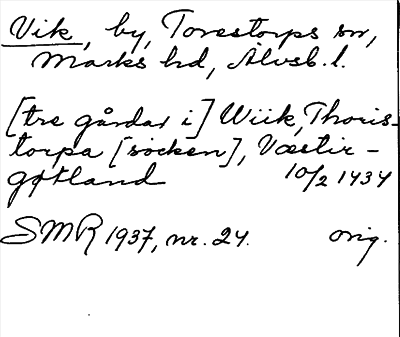 Vik, by, Torestorps sn,
Marks hd, Älvsb. l.
[tre gårdar i] Wiik, Thoris-
torpa [socken], Væstir-
gøtland 10/2 1434
SMR 1937, nr. 24. orig.